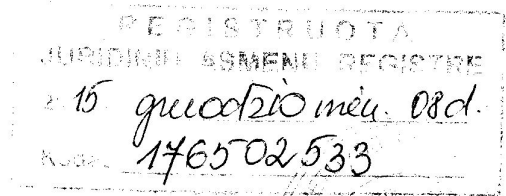 REGISTRUOTA
JURIDINIŲ ASMENŲ REGISTRE
2015 gruodžio mėn. 08 d.
Kodas 176502533